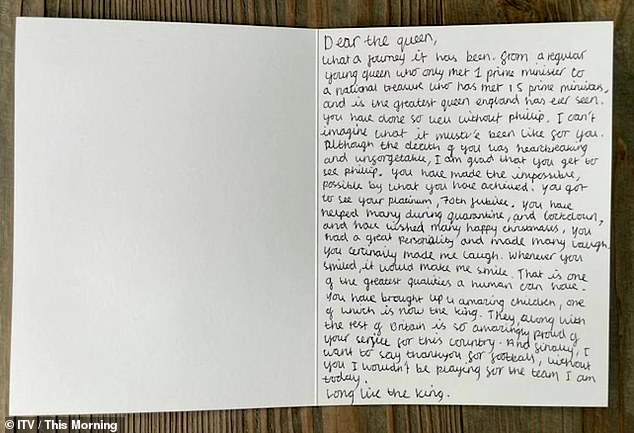 Dear the queen,
What a journey it has been. From a regular
young queen who only met 1 prime minister to
a national treasure who has met 15 prime ministers,
and is the greatest queen england has ever seen.
You have done so well without philip, I can't
imagine what it must've been like for you.
Although the death of you was heartbreaking
and unforgetable, I am glad that you get to
see philip. You have made the impossible,
possible by what you have achieved. You got
to see your platinum, 70th Jubilee. You have
helped many during quarantine, and lockdown,
and have wished many happy christmases. You
had a great personality and made many laugh.
You certainly made me laugh. Whenever you
smiled, it would make me smile. That is one
of the greatest qualities a human can have.
You have brought up 4 amazing children, one
of which is now the king. They along with
the rest of Britain is so amazingly proud of
your service for this country. And finally, I
want to say thankyou for football, without
you I wouldn't be playing for the team I am
today.
Long live the king.
© ITV / This Morning